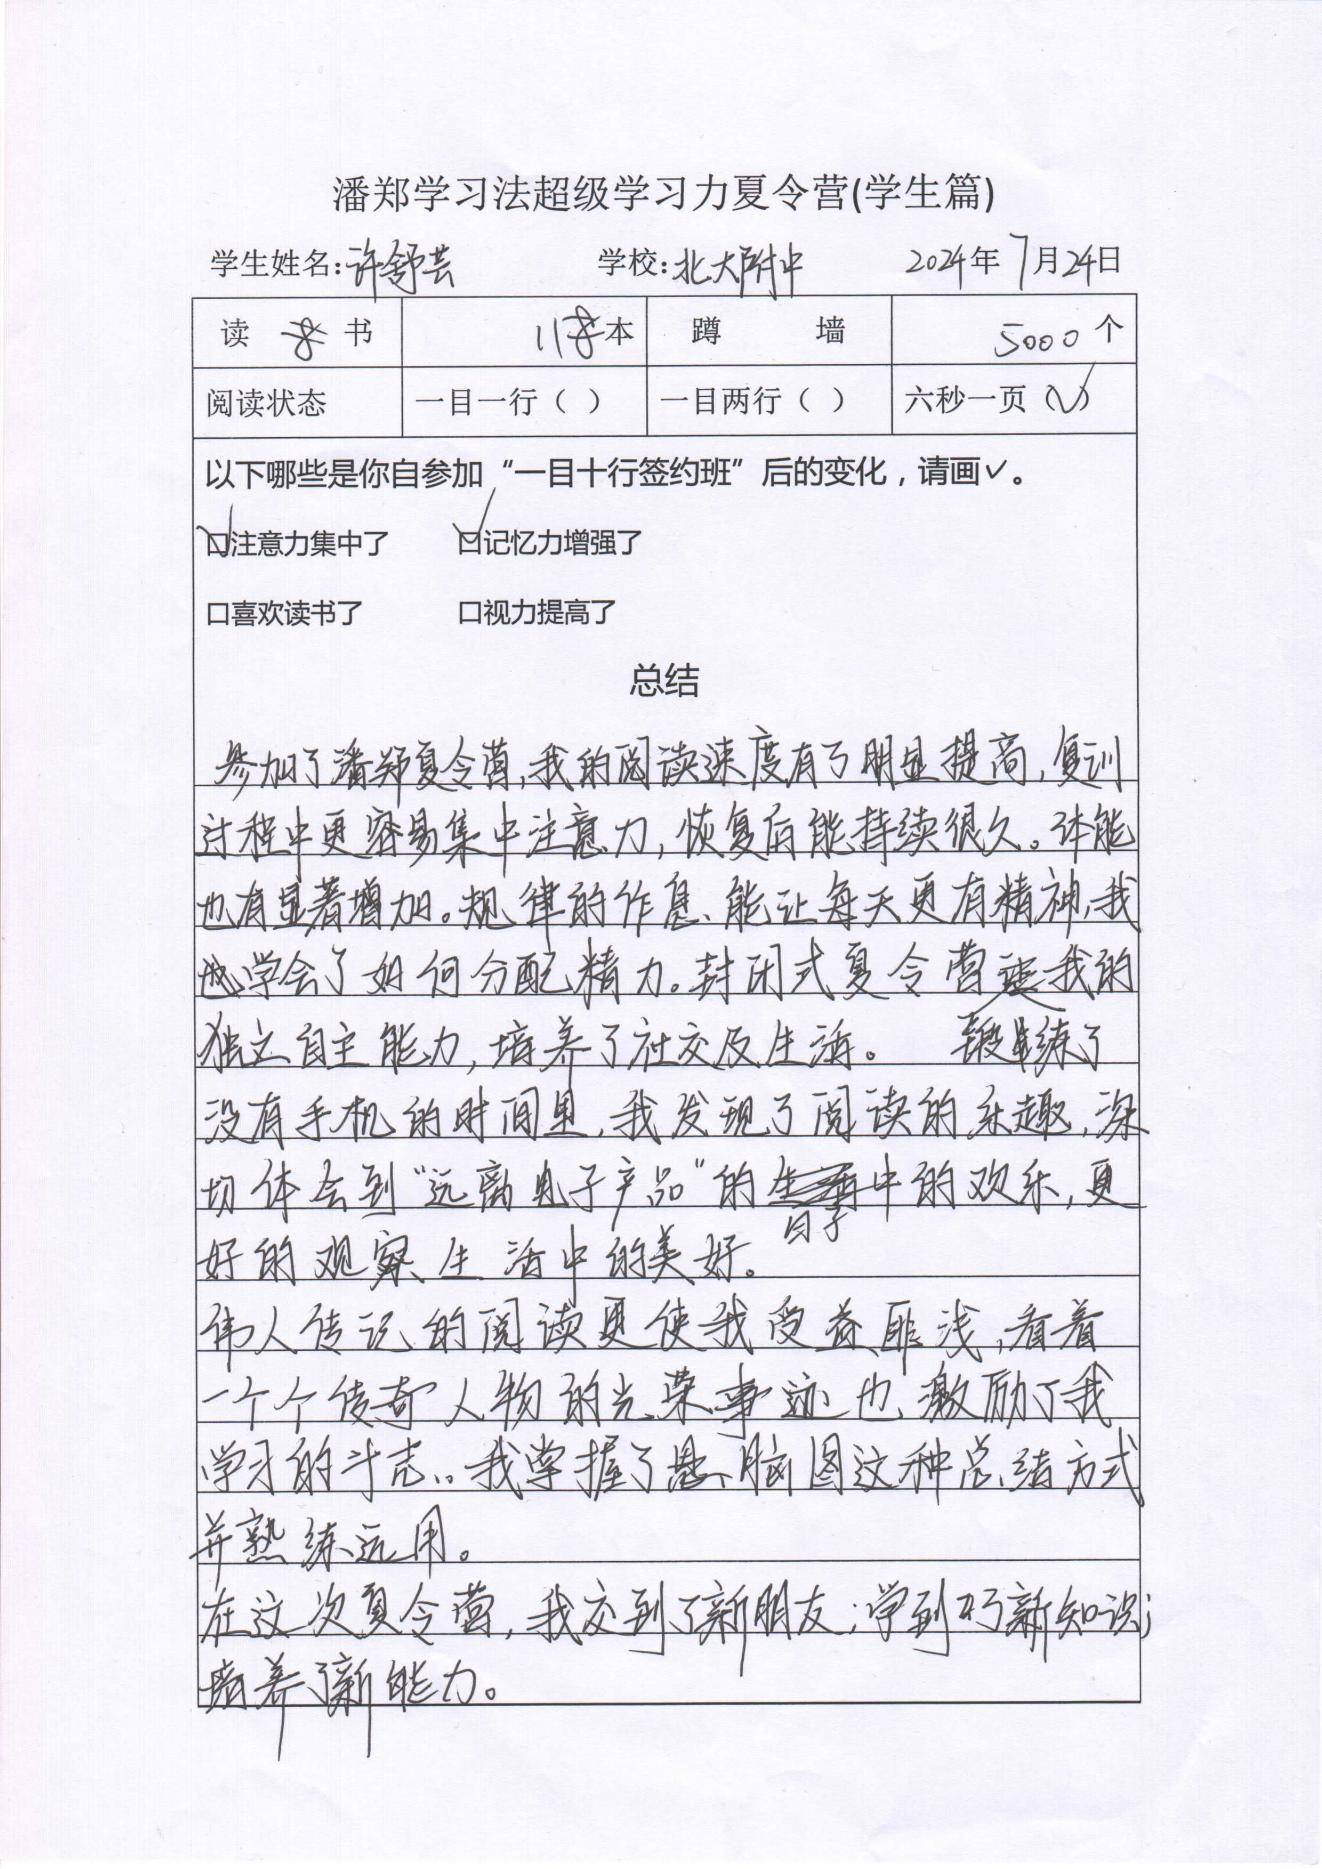 潘郑学习法超级学习力夏令营(学生篇)
学生姓名:许舒芸 学校:北大附中 2024年7月24日
读 书 118本 蹲 墙 5000个
阅读状态 一目一行（ ） 一目两行（ ） 六秒一页（✓）
以下哪些是你自参加“一目十行签约班”后的变化，请画✓。
☑注意力集中了 ☑记忆力增强了
口喜欢读书了 口视力提高了
总结
参加了潘郑夏令营,我的阅读速度有了明显提高,复训
过程中更容易集中注意力,恢复后能持续很久。体能
也有显著增加。规律的作息、能让每天更有精神,我
也学会了如何分配精力。封闭式夏令营 我的
独立自主能力,培养了社交及生活。 锻炼了
没有手机的时间里,我发现了阅读的乐趣,深
切体会到“远离电子产品”的 中的欢乐,更
日子
好的观察生活中的美好。
伟人传记的阅读更使我受益匪浅,看着
一个个传奇人物的光荣事迹也激励了我
学习的斗志。我掌握了 脑图这种总结方式
并熟练运用。
在这次夏令营,我交到了新朋友;学到了新知识;
培养了新能力。